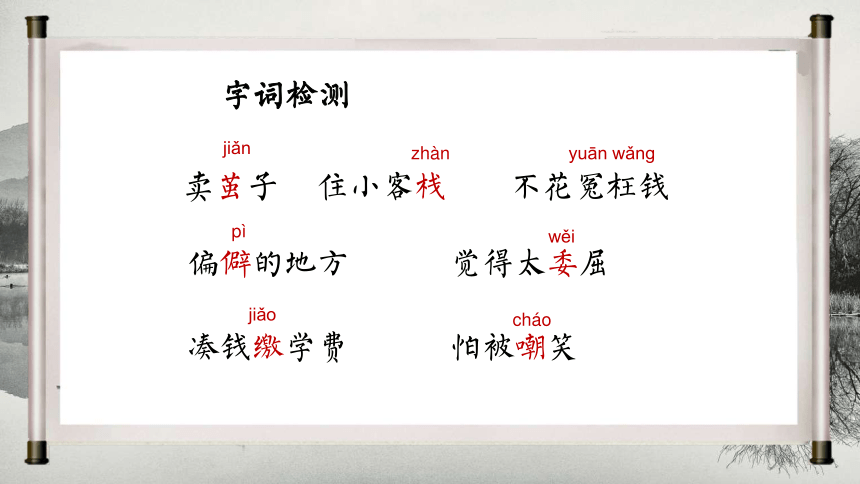 字词检测
jiǎn zhàn yuān wǎng
卖茧子 住小客栈 不花冤枉钱
pì wěi
偏僻的地方 觉得太委屈
jiǎo cháo
凑钱缴学费 怕被嘲笑